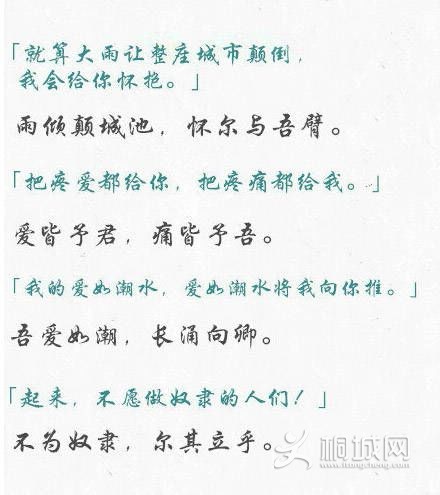 「就算大雨让整座城市颠倒，
我会给你怀抱。」
雨倾颠城池，怀尔与吾臂。
「把疼爱都给你，把疼痛都给我。」
爱皆予君，痛皆予吾。
「我的爱如潮水，爱如潮水将我向你推。」
吾爱如潮，长涌向卿。
「起来，不愿做奴隶的人们！」
不为奴隶，尔其立乎。
桐城网
www.itongcheng.com